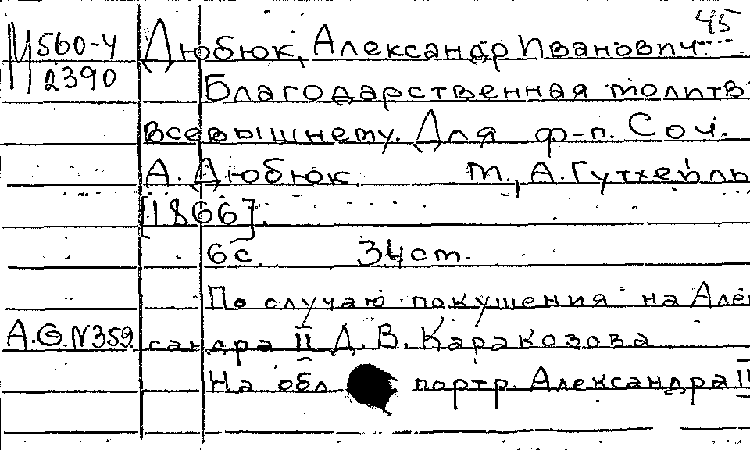 45
М 560-4 Дюбюк, Александр Иванович.
2390 Благодарственная молитв
всевышнему. Для ф-п. Соч.
А. Дюбюк. М., А. Гутхейль
[1866].
6с. 34 см.
По случаю покушения на Алек
А.Ф.N359. сандра II Д. В. Каракозова
На обл портр. Александра II